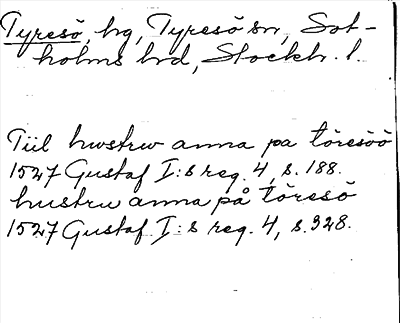 Tyresö, hg, Tyresö sn, Sot-
holms hd, Stockh. l.
Tiil hwstrw anna pa töresöö
1527 Gustaf I:s reg. 4, s. 188.
hustru anna på töresö
1527 Gustaf I:s reg. 4, s. 328.